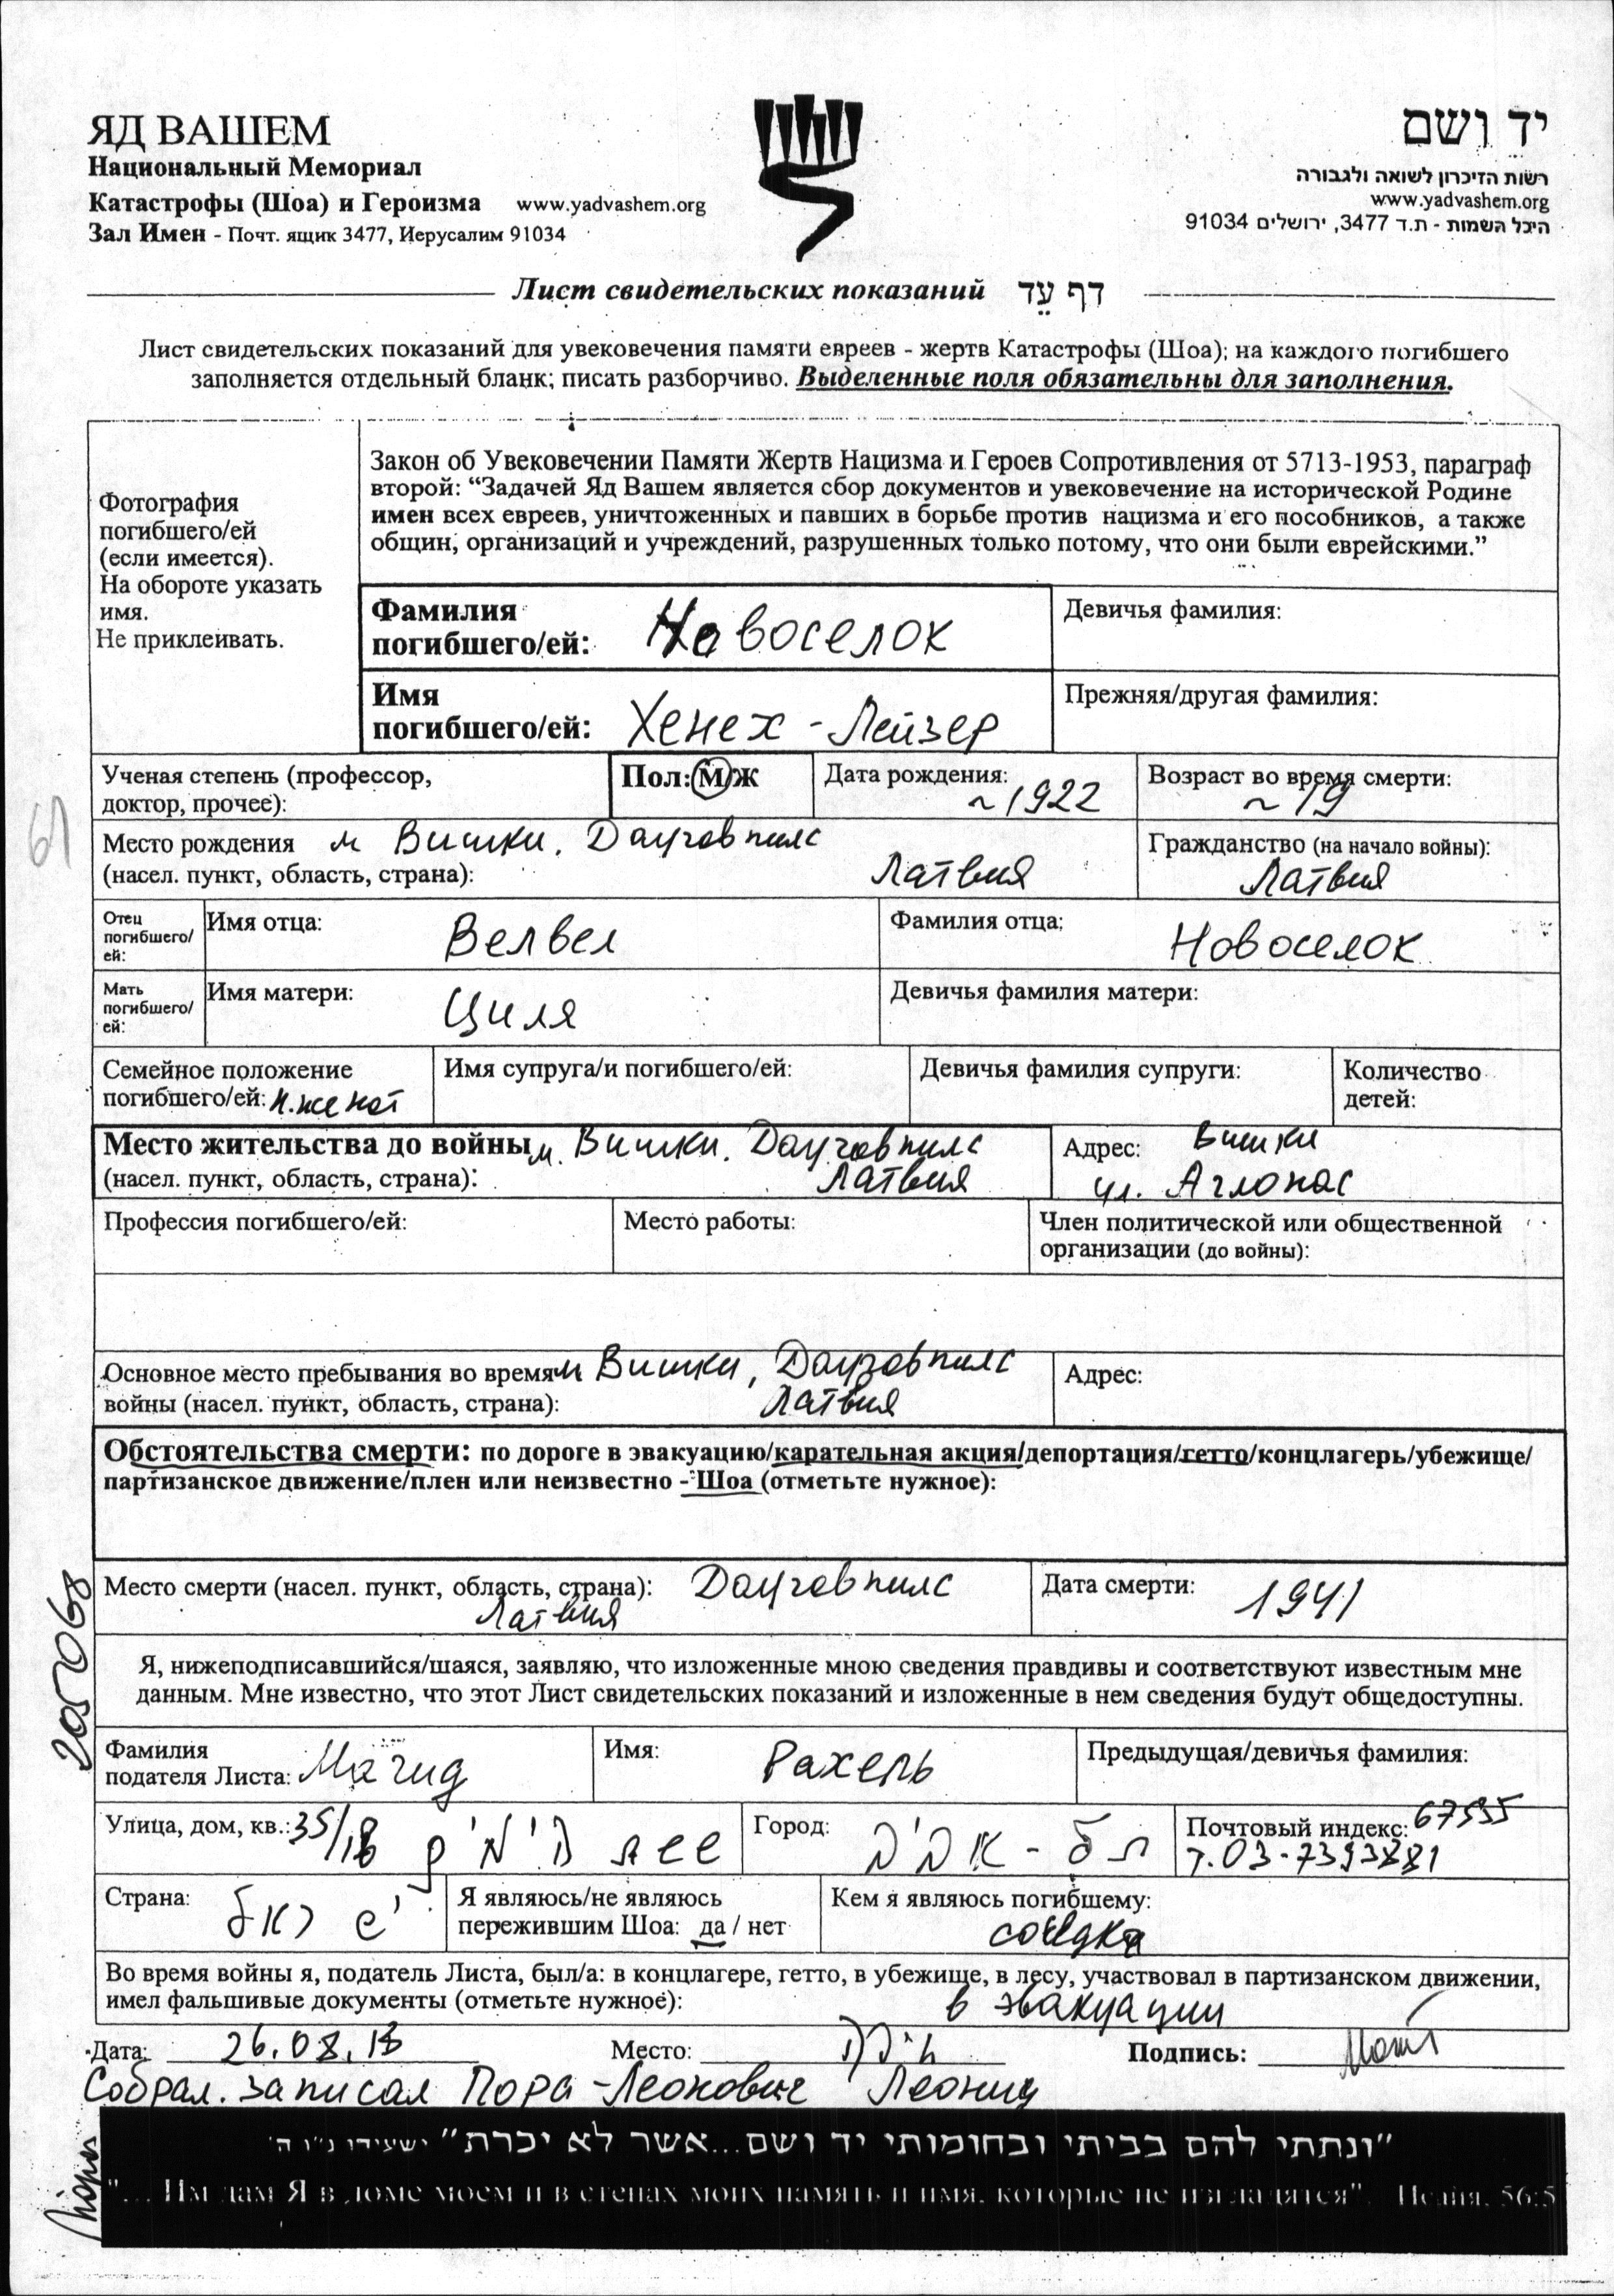 ЯД ВАШЕМ
Национальный Мемориал
Катастрофы (Шоа) и Героизма www.yadvashem.org
Зал Имен - Почт. ящик 3477, Иерусалим 91034
יד ושם
רשות הזיכרון לשואה ולגבורה
www.yadvashem.org
היכל השמות - ת.ד 3477, ירושלים 91034
Лист свидетельских показаний דף עֵד
Лист свидетельских показаний для увековечения памяти евреев - жертв Катастрофы (Шоа); на каждого погибшего
заполняется отдельный бланк; писать разборчиво. Выделенные поля обязательны для заполнения.
Фотография
погибшего/ей
(если имеется).
На обороте указать
имя.
Не приклеивать.
Закон об Увековечении Памяти Жертв Нацизма и Героев Сопротивления от 5713-1953, параграф
второй: “Задачей Яд Вашем является сбор документов и увековечение на исторической Родине
имен всех евреев, уничтоженных и павших в борьбе против нацизма и его пособников, а также
общин, организаций и учреждений, разрушенных только потому, что они были еврейскими.”
Фамилия
погибшего/ей: Новоселок
Девичья фамилия:
Имя
погибшего/ей: Хенех - Лейзер
Прежняя/другая фамилия:
Ученая степень (профессор,
доктор, прочее):
Пол: М/Ж
Дата рождения:
~1922
Возраст во время смерти:
~19
61
Место рождения м Вишки. Даугавпилс
(насел. пункт, область, страна): Латвия
Гражданство (на начало войны):
Латвия
Отец
погибшего/
ей:
Имя отца: Велвел
Фамилия отца: Новоселок
Мать
погибшего/
ей:
Имя матери: Циля
Девичья фамилия матери:
Семейное положение
погибшего/ей: н.женат
Имя супруга/и погибшего/ей:
Девичья фамилия супруги:
Количество
детей:
Место жительства до войны м. Вишки. Даугавпилс
(насел. пункт, область, страна): Латвия
Адрес: Вишки
ул. Аглонас
Профессия погибшего/ей:
Место работы:
Член политической или общественной
организации (до войны):
Основное место пребывания во время м Вишки, Даугавпилс
войны (насел. пункт, область, страна): Латвия
Адрес:
Обстоятельства смерти: по дороге в эвакуацию/карательная акция/депортация/гетто/концлагерь/убежище/
партизанское движение/плен или неизвестно - Шоа (отметьте нужное):
Место смерти (насел. пункт, область, страна): Даугавпилс
Латвия
Дата смерти: 1941
2057068
Я, нижеподписавшийся/шаяся, заявляю, что изложенные мною сведения правдивы и соответствуют известным мне
данным. Мне известно, что этот Лист свидетельских показаний и изложенные в нем сведения будут общедоступны.
Фамилия
подателя Листа: Магид
Имя: Рахель
Предыдущая/девичья фамилия:
Улица, дом, кв.: 35/18
Город: בת-ים
Почтовый индекс: 67535
т. 03-7393881
Страна: ישראל
Я являюсь/не являюсь
пережившим Шоа: да / нет
Кем я являюсь погибшему:
соседка
Во время войны я, податель Листа, был/а: в концлагере, гетто, в убежище, в лесу, участвовал в партизанском движении,
имел фальшивые документы (отметьте нужное): в эвакуации
Дата: 26.08.13
Место:
Подпись:
Собрал. Записал Пора-Леонович Леонид
"ונתתי להם בביתי ובחומותי יד ושם...אשר לא יכרת" ישעיהו נ"ו ה'
"... Им дам Я в доме моем и в стенах моих память и имя, которые не изгладятся". Исайя, 56:5